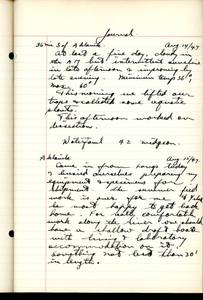 Journal
36 mi S of Adelaide Aug 14/47
At last a fine day, cloudy in
the A.M. but intermittent sunshine
in late afternoon & improving by
late evening. Minimum temp 36°,
max, 60°
This morning we lifted our
traps & collected some aquatic
plants.
This afternoon worked on
dissection.
Waterfowl 42 widgeon.
Adelaide Aug 15/47
Came in from camp today
& busied ourselves preparing my
equipment & specimens for
shipment. The summer field
work is over for me & I'll
be most happy to get back
home. For really comfortable
work along the river one should
have a shallow draft boat
with living & laboratory
accommodation on it,
something not less than 30'
in length!